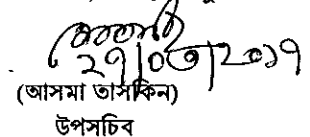 ২৭।০৩।২০১৭
(আসমা তাসকিন)
উপসচিব